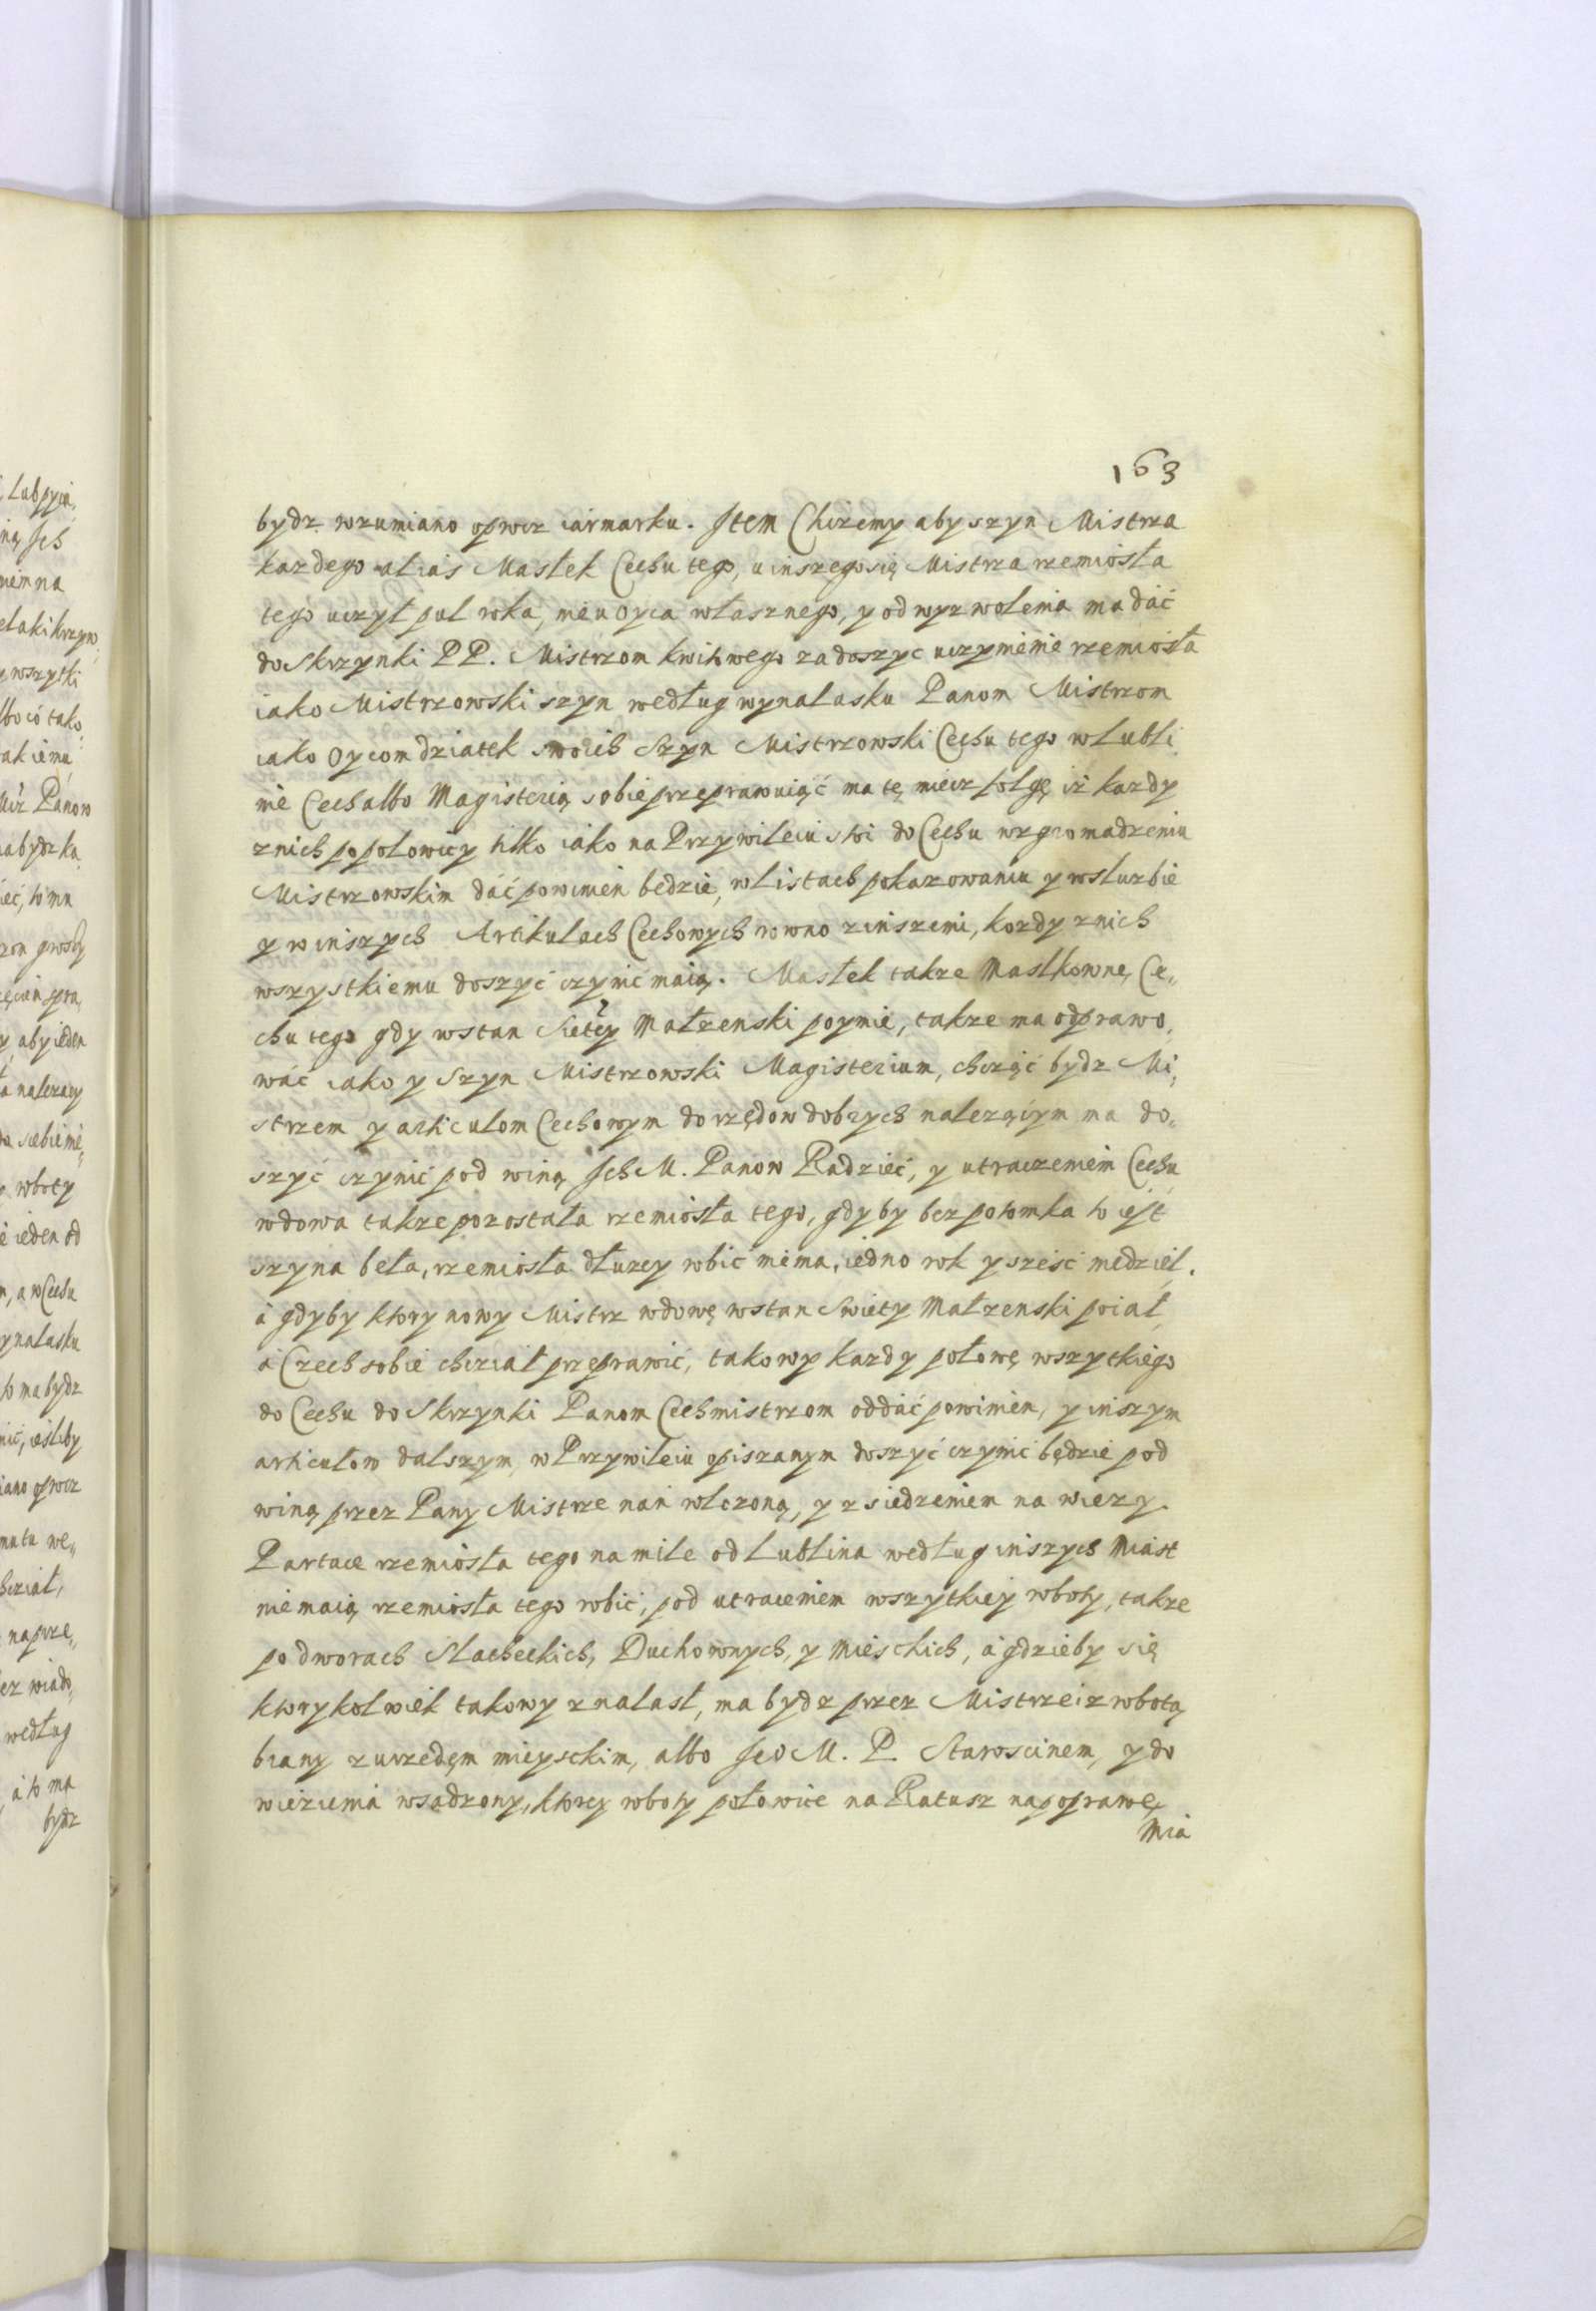 163
bydz wzumiano oprocz iarmarku. Item Chczemy aby szyn Mistrza
kazdego alias Mastek Cechu tego, u inszego się Mistrza rzemiosła
tego uczył puł roka, nie u oyca własznego, y od wyzwolenia ma dać
do Skrzynki PP. Mistrzom kwitowego za doszyc uczynienie rzemiosła
iako Mistrzowski szyn według wynalasku Panom Mistrzom
iako oycom dziatek swoich Szyn Mistrzowski Cechu tego w Lubli
nie Cech albo Magisterią sobie przeprawuiąć ma tę miecz folgę iż kazdy
z nich po połowicy tilko iako na Przywileiu stoi do Cechu w zgromadzeniu
Mistrzowskim dáć powinien bedzie, w listach pokazowaniu y w słuzbie
y w inszych Artikułach Cechowych rowno z inszemi, kozdy z nich
wszystkiemu doszyć czynić maią. Mastek takze Mastkownę Ce„
chu tego gdy w stan Siety Małzenski poymie, takze ma odprawo„
wáć iako y Szyn Mistrzowski Magisterium, chcząć bydz Mi„
strzem y articulom Cechowym do rzędow dobrych nalezącym ma do„
szyć czynić pod winą Ich M. Panow Radzieć, y utraczeniem Cechu
wdowa takze pozostała rzemiosła tego, gdy by bez potomka to iest
szyna beła, rzemiosła dłuzey robić niema, iedno rok y sześć niedziel.
á gdyby ktory nowy Mistrz wdowę w stan Swiety Małzenski poiał,
á Czech sobie chcział przeprawić, takowy kazdy połowę wszytkiego
do Cechu do Skrzynki Panom Cechmistrzom oddáć powinien, y inszym
articułow dalszym, w Przywileiu opiszanym doszyć czynić będzie pod
winą przez Pany Mistrze nań włczoną, y z siedzeniem na wiezy.
Partace rzemiosła tego na mile od Lublina według inszych Miast
nie maią rzemiosła tego robić, pod utraceniem wszytkiey roboty, takze
po dworach Slacheckich, Duchownych, y Mieskich, á gdzieby się
ktorykolwiek takowy znalasł, ma bydz przez Mistrze i z robotą
brany z urzedęm mieysckim, albo Ieo M. P. Staroscinem, y do
wiezienia wsadzony, ktorey roboty połowice na Ratusz na poprawę
Mia